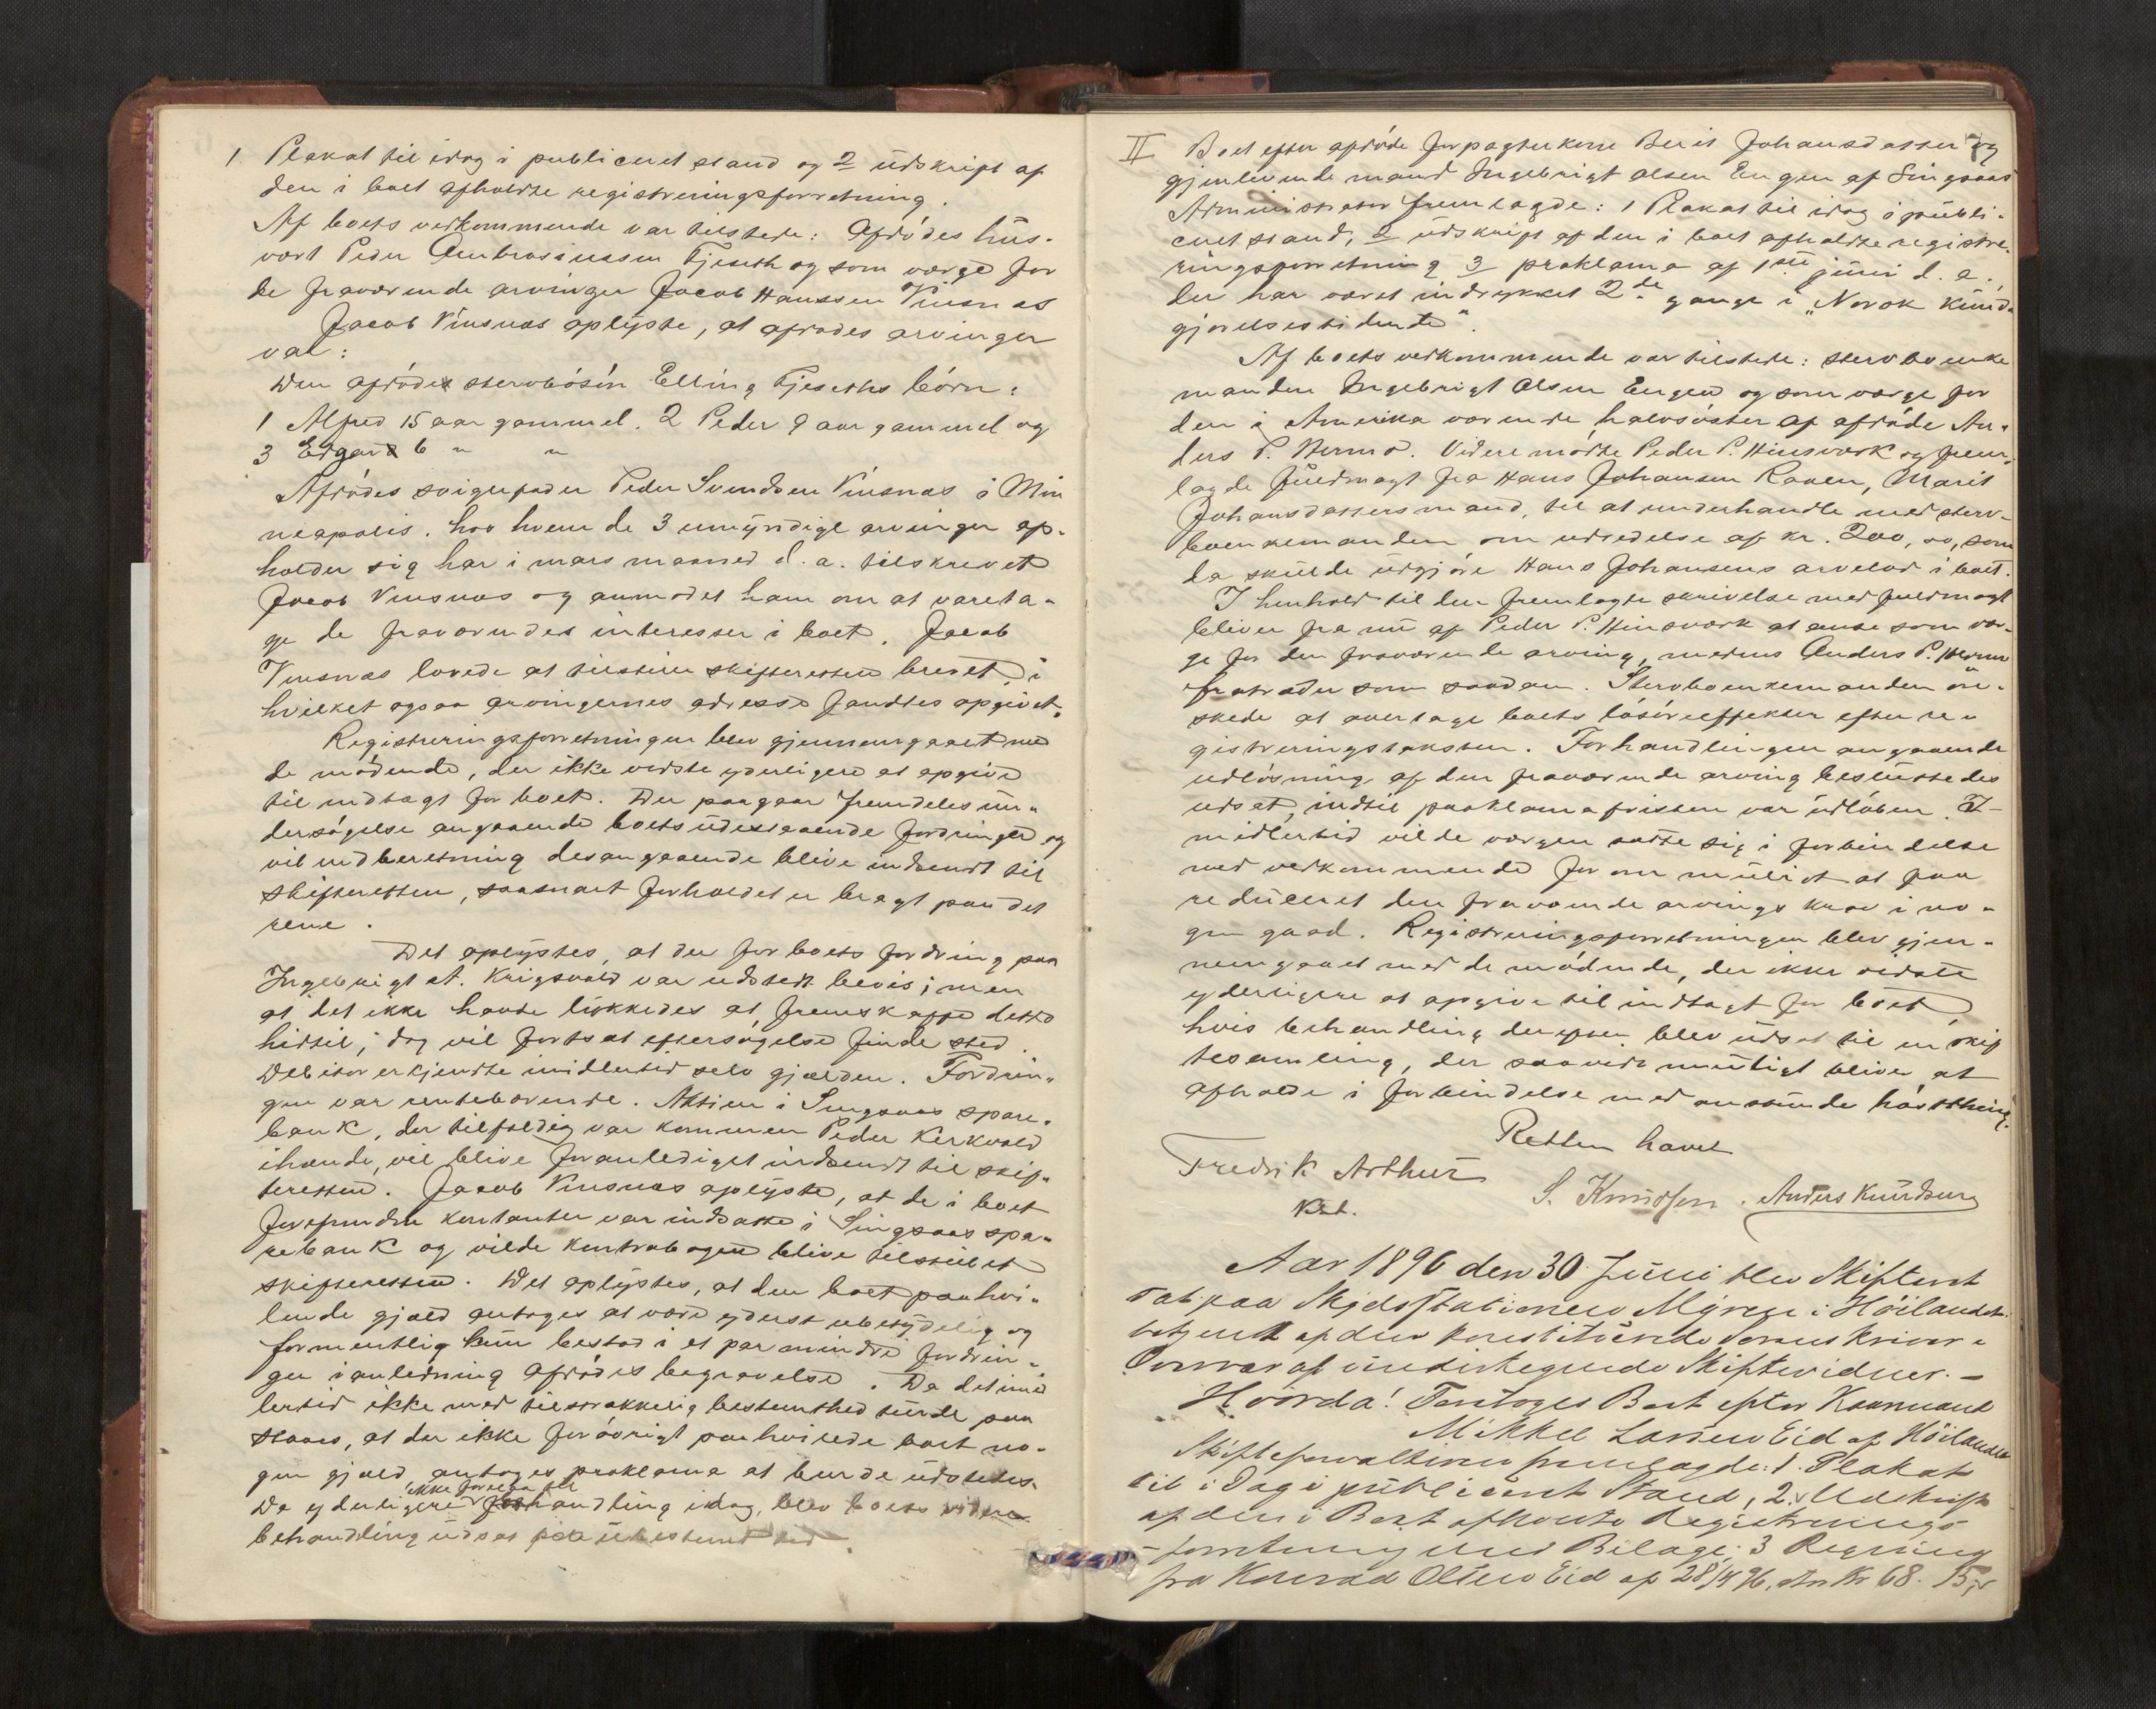 1 Plakat til idag i publiceret stand og 2 udskript af
den i boet afholdte registreringsforretning.
Af boets vedkommende var tilstede: Afdødes hus-
vært Peder Ambrosiussen Fjeseth og som værge for
de fraværende arvinger Jacob Hanssen Vinsnes
Jacob Vinsnes oplyste, at afdødes arvinger
var:
Den afdøde sterbøsøn Elling Fjeseths børn:
1 Alfred 15 aar gammel. 2 Peder 9 aar gammel og
3 Edgar 6 " "
Afdødes svigerfader Peder Svendsen Vinsnes i Min
neapolis, hos hvem de 3 umyndige arvinger op-
holder sig har i mars maaned d. a. tilskrevet
Jacob Vinsnes og anmodet ham om at vareta-
ge de fraværendes interesser i boet. Jacob
Vinsnes lovede at tilstille skifteretten brevet, i
hvilket ogsaa arvingernes adresse fandtes opgivet.
Registreringsforretningen blev gjennemgaaet med
de mødende, der ikke vidste yderligere at opgive
til indtægt for boet. Der paagaar fremdeles un-
dersøgelse angaaende boets udestaaende fordringer og
vil indberetning desangaaende blive indsendt til
skifteretten, saasnart forholdet er bragt paa det
rene.
Det oplystes, at der for boets fordring paa
Ingebrigt st. Krigsvold var udstedt bevis; men
at det ikke havde lykkedes at fremskaffe dette
hidtil; dog vil fortsat eftersøgelse finde sted.
Debitor erkjendte imidlertid selv gjælden. Fordrin-
gen var rentebærende. Aktien i Singsaas spare-
bank, der tilfældig var kommen Peder Kirkvold
ihænde, vil blive foranlediget indsendt til skif-
teretten. Jacob Vinsnes oplyste, at de i boet
forefundne kontanter var indsatte i Singsaas spa-
rebank og vilde kontrabogen blive tilstillet
skifteretten. Det oplystes, at den boet paahvi-
lende gjæld antoges at være yderst ubetydelig og
formentlig kun bestod i et par mindre fordrin-
ger i anledning afdødes begravelse. Da det imid
lertid ikke med tilstrækkelig bestemthed turde paa
staaes, at der ikke forøvrigt paahvilede boet no-
gen gjæld, antoges proklama at burde udstedes.
Da yderligere ikke forelaa til handling idag, blev boets videre
behandling udsat paa ubestemt tid.
II Boet efter afdøde forpagterkone Berit Johansdatter og 7
gjenlevende mand Ingebrigt Olsen Engen af Singsaas
Administrator fremlagde: 1 Plakat til idag i publi-
ceret stand, 2 udskript af den i boet afholdte registre-
ringsforretning 3 proklama af 1ste juni d. a.
der har været indrykket 2de gange i "Norsk Kund-
gjørelsestidende".
Af boets vedkommende var tilstede: sterboenke
manden Ingebrigt Olsen Engen og som værge for
den i Amerika værende halvsøster af afdøde An-
ders P. Hermo. Videre mødte Peder P. Hinsværk og frem-
lagde fuldmagt fra Hans Johansen Raaen, Marit
Johansdatters mand, til at underhandle med sterv-
boenkemanden om udredelse af kr. 200,00, som
da skulde udgjøre Hans Johansens arvelod i boet.
I henhold til den fremlagte skrivelse med fuldmagt
bliver fra nu af Peder P. Hinsværk at anse som vær-
ge for den fraværende arving, medens Anders P. Hermo
fratræder som saadan. Stervboenkemanden øn-
skede at overtage boets løsøreeffekter efter re-
gistreringstaksten. Forhandlingen angaaende
udløsning af den fraværende arving besluttedes
udsat, indtil proklamafristen var udløben. I-
midlertid vilde værgen sætte sig i forbindelse
med vedkommende for om muligt at faa
reduceret den fraværende arvings krav i no-
gen grad. Registreringsforretningen blev gjen-
nemgaaet med de mødende, der ikke vidste
yderligere at opgive til indtægt for boet,
hvis behandling derefter blev udsat til en skif
tesamling, der saavidt muligt bliver at
afholde i forbindelse med anstundende høstthing.
Retten hævet
Fredrik Arthur
Kst.
S. Knudsen. Anders Kundsen
Aar 1896 den 30 Juni blev Skifteret
sat paa Skydsstationen Myren i Høilandet
betjent af den konstituerede Sorenskriver i
Overvær af undertegnede Skiftevidner. –
Hvorda! Foretoges Boet efter Kaarmand
Mikkel Larsen Eid af Høilandet
Skifteforvalteren fremlagde: 1. Plakat
til i Dag i publiceret Stand, 2. Udskrift
af den i Boet afholdte Registrerings
forretning med Bilage: 3 Regning
fra Konrad Olsen Eid af 28/4 96, stor Kr 68. 15,